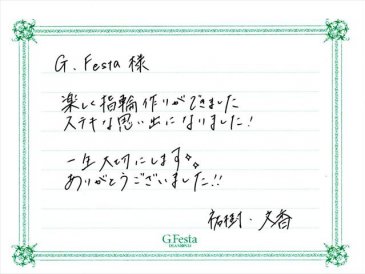 G.Festa 様
楽しく指輪作りができました
ステキな思い出になりました!
一生大切にします✨
ありがとうございました!!
祐樹・文香
G.Festa
DIAMOND